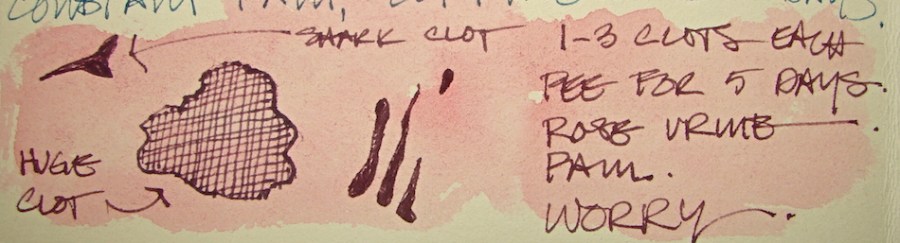 CONSTANT PAIN,
DAYS.
SHARK CLOT
1-3 CLOTS EACH
PEE FOR 5 DAYS.
ROSE URINE.
PAIN.
WORRY.
HUGE
CLOT